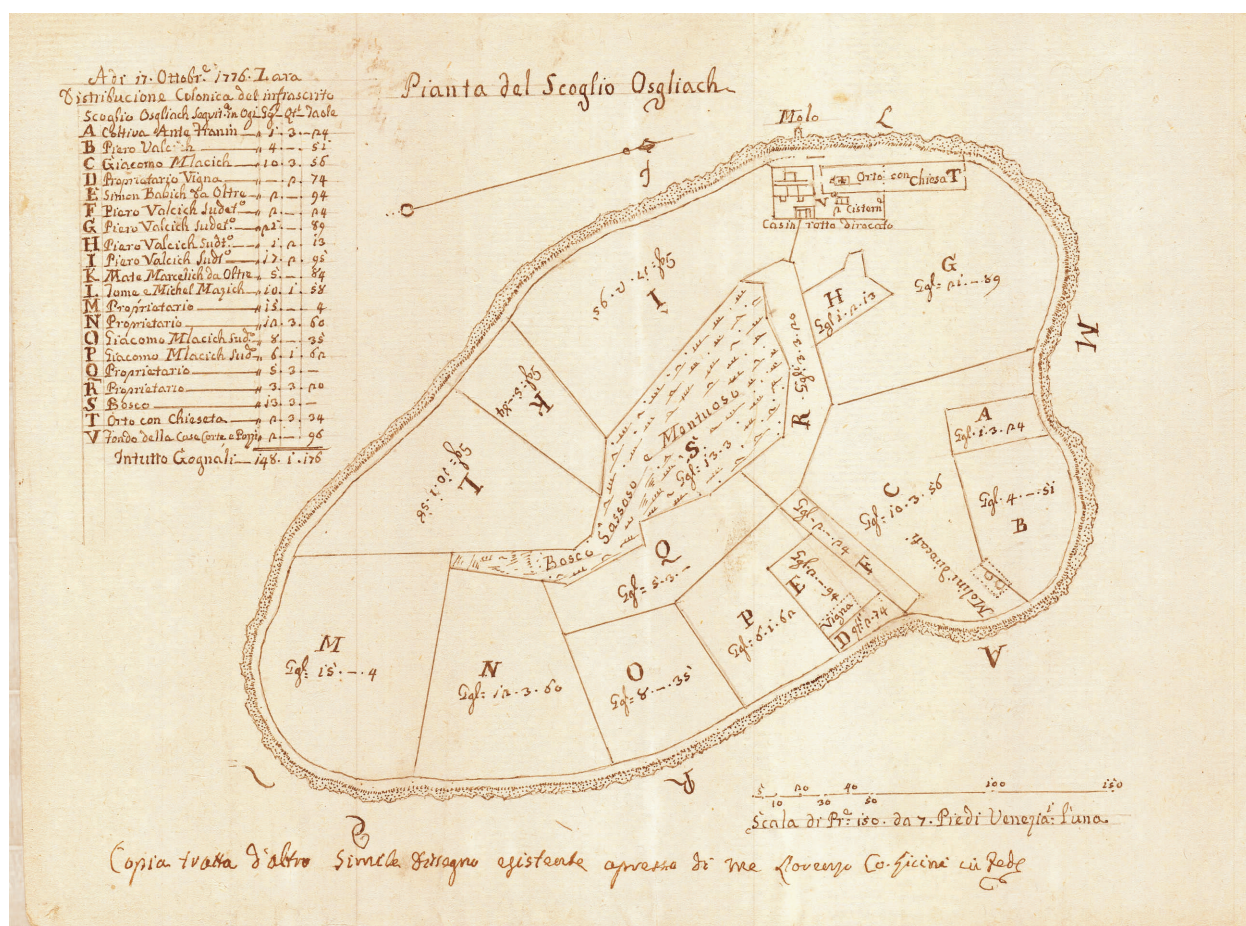 A di 17. Ottobr.e 1776. Zara
Distribucione Colonica del infrascrito
Scoglio Osgliach Seguit.a in Ogi Ggl. Qt.i Taole
A Coltiva Ante Hanin „ 1 . 3 . 24
B Piero Valcich „ 4 . — . 51
C Giacomo Mlacich „ 10 . 3 . 56
D Proprietario Vigna „ — . 2 . 74
E Simon Babich da Oltre „ 2 . — . 94
F Piero Valcich Sudet.o „ 2 . — . 24
G Piero Valcich Sudet.o „ 21 . — . 89
H Piero Valcich Sudt.o „ 1 . 2 . 13
I Piero Valcich Sudt.o „ 17 . 2 . 95
K Mate Marcelich da Oltre „ 5 . — . 84
L Tome e Michel Mazich „ 10 . 1 . 58
M Proprietario „ 15 . — . 4
N Proprietario „ 12 . 3 . 60
O Giacomo Mlacich Sud.o „ 8 . — . 35
P Giacomo Mlacich Sud.o „ 6 . 1 . 62
Q Proprietario „ 5 . 3 . —
R Proprietario „ 3 . 3 . 20
S Bosco „ 13 . 3 . —
T Orto con Chieseta „ 2 . 3 . 34
V Fondo della Case Corte e Pozzi „ 2 . — . 96
Intutto Gognali — 148 . 1 . 176
Pianta del Scoglio Osgliach
Molo
L
Orto con Chiesa T
V
Cistern.a
Casin rotto dirocato
I
Ggl: 17. 2. 95
H
Ggl: 1. 2. 13
G
Ggl: 21. — 89
M
K
Ggl: 5. — 84
R
Ggl: 3. 3. 20
A
Ggl. 1. 3. 24
L
Ggl: 10. 1. 58
Bosco Sassoso e Montuoso
S
Ggl: 13. 3
C
Ggl: 10. 3. 56
Ggl. 4. — . 51
B
Molini dirocati
Q
Ggl: 5. 3 —
Ggl. 2. — 24
F
Ggl. 2. — 94
E
Vigna
D
2. 74
P
Ggl: 6. 1. 62
M
Ggl: 15. — . 4
N
Ggl: 12. 3. 60
O
Ggl: 8. — . 35
V
5 10 20 30 40 50 100 150
Scala di Pr.e 150. da 7. Piedi Venezia.i l'una
Copia tratta d'altro Simile dissegno esistente apresso di me Lorenzo Co.